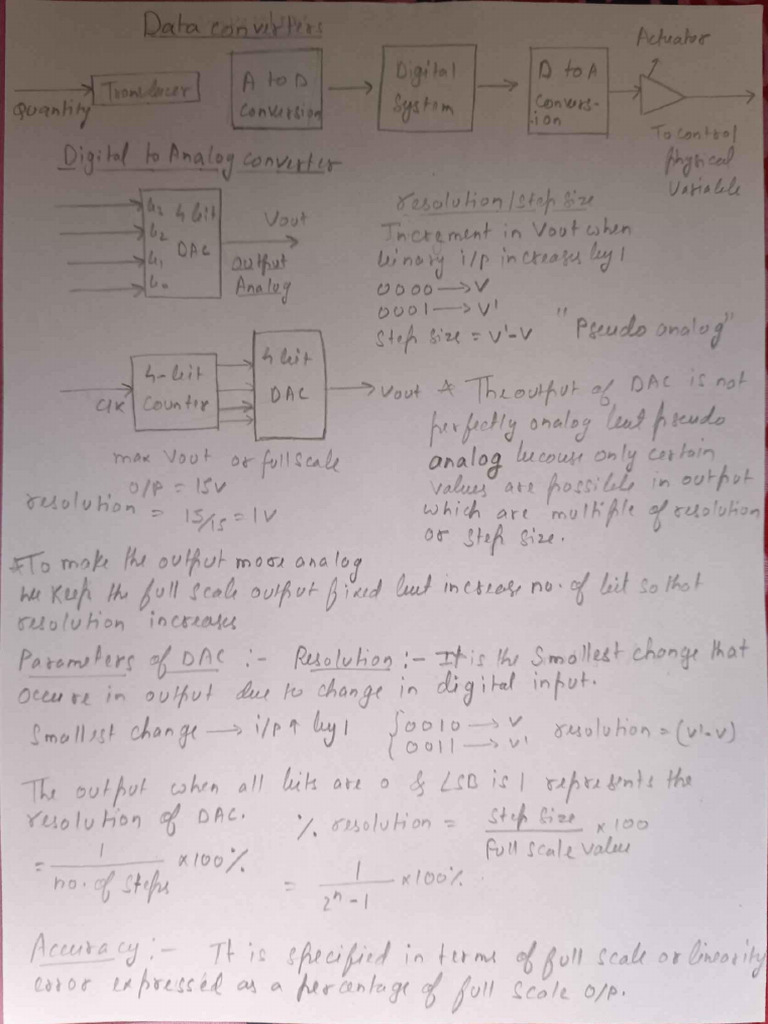 Data converters
Quantity
Transducer
A to D
Conversion
Digital
System
D to A
Convers-
ion
Actuator
To control
physical
Variable
Digital to Analog converter
b3
b2
b1
b0
4 bit
DAC
Vout
output
Analog
resolution/step size
Increment in Vout when
binary i/p increases by 1
0000 → V
0001 → V'
Step size = V'-V
"Pseudo analog"
Clk
4-bit
Counter
4 bit
DAC
Vout
max Vout or full scale
O/P = 15V
resolution = 15/15 = 1V
* The output of DAC is not
perfectly analog but pseudo
analog because only certain
values are possible in output
which are multiple of resolution
or step size.
*To make the output more analog
we keep the full scale output fixed but increase no. of bit so that
resolution increases
Parameters of DAC :- Resolution :- It is the Smallest change that
occure in output due to change in digital input.
Smallest change → i/p ↑ by 1 { 0010 → V
0011 → V' resolution = (V'-V)
The output when all bits are 0 & LSB is 1 represents the
resolution of DAC. % resolution = Step Size / Full Scale Value × 100
= 1 / no. of steps × 100% = 1 / 2^n - 1 × 100%.
Accuracy :- It is specified in terms of full scale or linearity
error expressed as a percentage of full scale O/P.